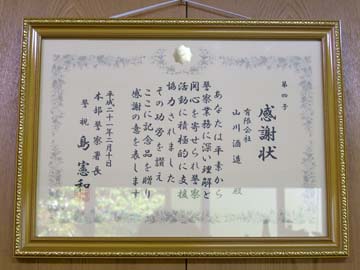 第四号
感謝状
有限会社
山川酒造 殿
あなたは平素から
警察業務に深い理解と
関心を寄せられ警察
活動に積極的に支援
協力されました
その功労を讃え
ここに記念品を贈り
感謝の意を表します
平成二十一年二月十日
本部警察署長
警視 島憲和